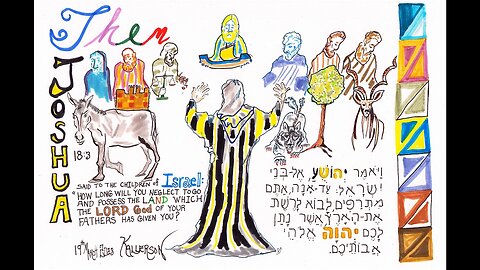 Then
JOSHUA
18:3
SAID TO THE CHILDREN of Israel:
"HOW LONG WILL YOU NEGLECT TO GO
AND POSSESS THE LAND WHICH
THE LORD God OF YOUR
FATHERS HAS GIVEN YOU?
19th
KALLERSON
וַיֹּאמֶר יְהוֹשֻׁעַ, אֶל-בְּנֵי
יִשְׂרָאֵל: עַד-אָנָה, אַתֶּם
מִתְרַפִּים, לָבוֹא לָרֶשֶׁת
אֶת-הָאָרֶץ אֲשֶׁר נָתַן
לָכֶם יהוה אֱלֹהֵי
אֲבוֹתֵיכֶם.